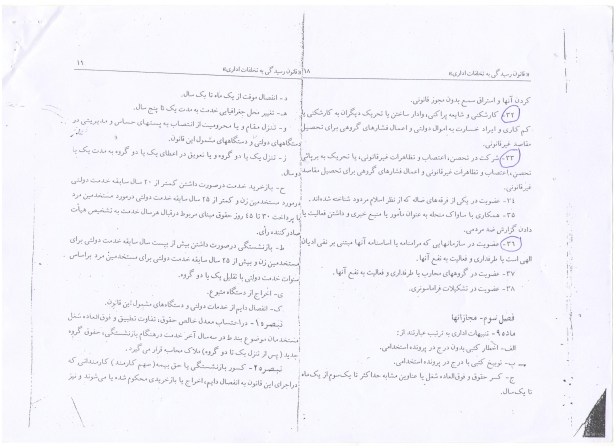 «قانون رسیدگی به تخلفات اداری» ۱۸
کردن آنها و استراق سمع بدون مجوز قانونی.
۳۲- کارشکنی و شایعه پراکنی، وادار ساختن یا تحریک دیگران به کارشکنی یا
کم کاری و ایراد خسارت به اموال دولتی و اعمال فشارهای گروهی برای تحصیل
مقاصد غیرقانونی.
۳۳- شرکت در تحصن، اعتصاب و تظاهرات غیرقانونی، یا تحریک به برپائی
تحصن، اعتصاب و تظاهرات غیرقانونی و اعمال فشارهای گروهی برای تحصیل مقاصد
غیرقانونی.
۳۴- عضویت در یکی از فرقه‌های ضاله که از نظر اسلام مردود شناخته شده‌اند.
۳۵- همکاری با ساواک منحله به عنوان مأمور یا منبع خبری و داشتن فعالیت یا
دادن گزارش ضد مردمی.
۳۶- عضویت در سازمانهایی که مرامنامه یا اساسنامه آنها مبتنی بر نفی ادیان
الهی است یا طرفداری و فعالیت به نفع آنها.
۳۷- عضویت در گروههای محارب یا طرفداری و فعالیت به نفع آنها.
۳۸- عضویت در تشکیلات فراماسونری.
فصل سوم- مجازاتها
ماده۹- تنبیهات اداری به ترتیب عبارتند از:
الف- اخطار کتبی بدون درج در پرونده استخدامی.
ب- توبیخ کتبی با درج در پرونده استخدامی.
ج- کسر حقوق و فوق‌العاده شغل یا عناوین مشابه حداکثر تا یک‌سوم از یک‌ماه
تا یک‌سال.
«قانون رسیدگی به تخلفات اداری» ۱۹
د- انفصال موقت از یک ماه تا یک سال.
هـ- تغییر محل جغرافیایی خدمت به مدت یک تا پنج سال.
و- تنزل مقام و یا محرومیت از انتصاب به پستهای حساس و مدیریتی در
دستگاههای دولتی و دستگاههای مشمول این قانون.
ز- تنزل یک یا دو گروه و یا تعویق در اعطای یک یا دو گروه به مدت یک یا
دوسال.
ح- بازخرید خدمت درصورت داشتن کمتر از ۲۰ سال سابقه خدمت دولتی
درمورد مستخدمین زن و کمتر از ۲۵ سال سابقه خدمت دولتی درمورد مستخدمین مرد
با پرداخت ۳۰ تا ۴۵ روز حقوق مبنای مربوط درقبال هرسال خدمت به تشخیص هیأت
صادرکننده رأی.
ط- بازنشستگی درصورت داشتن بیش از بیست سال سابقه خدمت دولتی برای
مستخدمین زن و بیش از ۲۵ سال سابقه خدمت دولتی برای مستخدمین مرد براساس
سنوات خدمت دولتی با تقلیل یک یا دو گروه.
ی- اخراج از دستگاه متبوع.
ک- انفصال دایم از خدمات دولتی و دستگاههای مشمول این قانون.
تبصره۱- دراحتساب معدل خالص حقوق، تفاوت تطبیق و فوق‌العاده شغل
مستخدمان موضوع بند ط در سه‌سال آخر خدمت درهنگام بازنشستگی، حقوق گروه
جدید (پس از تنزل یک تا دو گروه) ملاک محاسبه قرار می‌گیرد.
تبصره۲- کسور بازنشستگی یا حق بیمه (سهم کارمند) کارمندانی که
دراجرای این قانون به انفصال دایم، اخراج یا بازخریدی محکوم شده یا می‌شوند و نیز